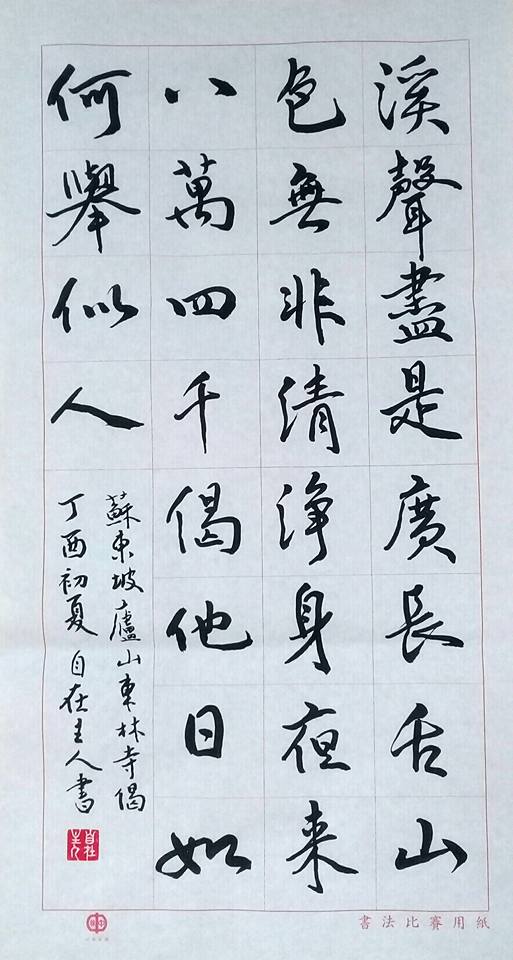 溪聲盡是廣長舌山
色無非清淨身夜来
八萬四千偈他日如
何舉似人
蘇東坡廬山東林寺偈
丁酉初夏自在主人書
自在主人
書法比賽用紙